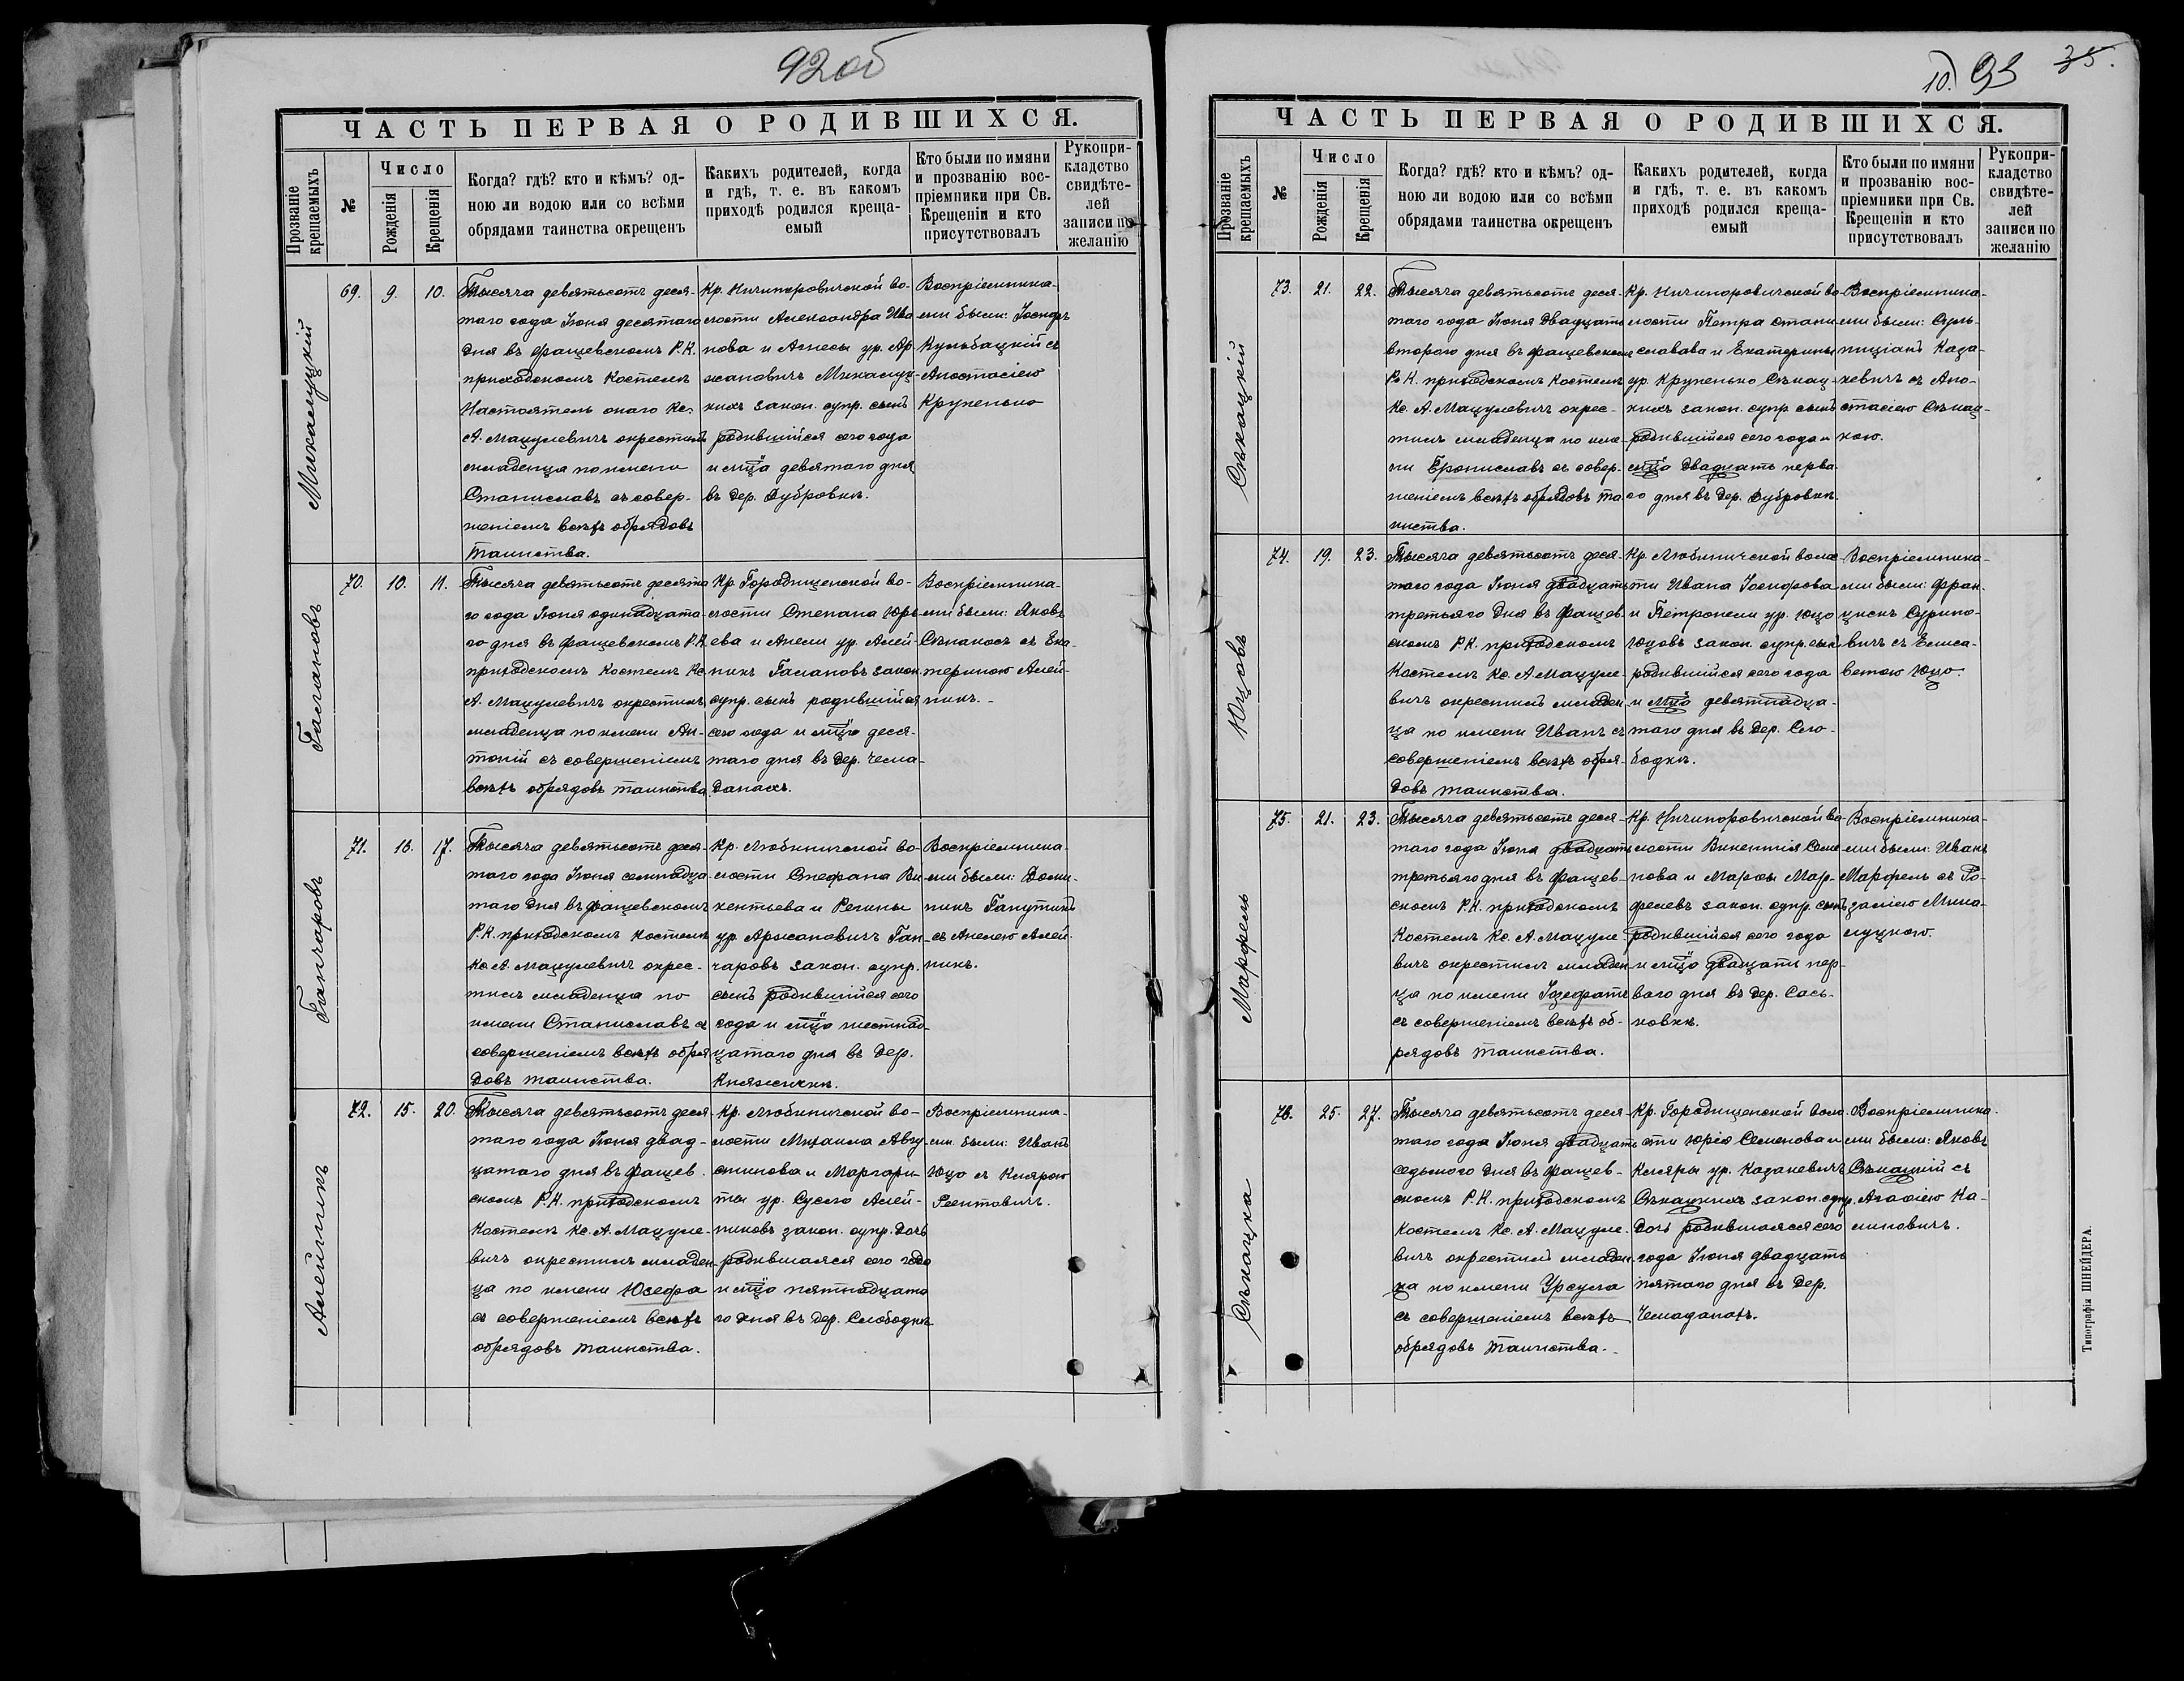 92об
ЧАСТЬ ПЕРВАЯ О РОДИВШИХСЯ.
Прозваніе крещаемыхъ
№
Число
Рожденія
Крещенія
Когда? гдѣ? кто и кѣмъ? од-
ною ли водою или со всѣми
обрядами таинства окрещенъ
Какихъ родителей, когда
и гдѣ, т. е. въ какомъ
приходѣ родился креща-
емый
Кто были по имяни
и прозванію вос-
пріемники при Св.
Крещеніи и кто
присутствовалъ
Рукопри-
кладство
свидѣте-
лей
записи по
желанію
Микалуцкій
69.
9.
10.
Тысяча девятьсотъ деся-
таго года Іюня десятаго
дня въ Фащевскомъ Р.К.
приходскомъ костелѣ
Настоятель онаго Кс.
А. Мацулевичъ окрестилъ
младенца по имени
Станиславъ съ совер-
шеніемъ всѣхъ обрядовъ
таинства.
Кр. Ничипоровичской во-
лости Александра Ива
нова и Агнесы ур. Ар-
жановичъ Микалуц-
кихъ закон. супр. сынъ
родившійся сего года
и мца девятаго дня
въ дер. Дубровкѣ.
Воспріемника-
ми были: Іосифъ
Кульбацкій съ
Апостасіею
Крупенько
Гасановъ
70.
10.
11.
Тысяча девятьсотъ десята
го года Іюня одинадцата-
го дня въ Фащевскомъ Р.К
приходскомъ костелѣ Кс.
А. Мацулевичъ окрестилъ
младенца по имени Ан-
тоній съ совершеніемъ
всѣхъ обрядовъ таинства
Кр. Городищенской во-
лости Степана Юрь
ева и Анели ур. Алей-
никъ Гасановъ закон.
супр. сынъ родившійся
сего года и мца деся-
таго дня въ дер. Чема-
данахъ.
Воспріемника-
ми были: Яковъ
Сѣнакосъ съ Ека-
териною Алей-
никъ.
Ганчаровъ
71.
16.
17.
Тысяча девятьсотъ деся-
таго года Іюня семнадца-
таго дня въ Фащевскомъ
Р.К. приходскомъ костелѣ
Кс. А. Мацулевичъ окрес-
тилъ младенца по
имени Станиславъ съ
совершеніемъ всѣхъ обря
довъ таинства.
Кр. Любиничской во-
лости Стефана Ви
кентьева и Регины
ур. Аржановичъ Ган-
чаровъ закон. супр.
сынъ родившійся сего
года и мца шестнад-
цатаго дня въ дер.
Княжичкѣ.
Воспріемника-
ми были: Доми-
никъ Ганутинъ
съ Анелею Алей-
никъ.
Алейникъ
72.
15.
20.
Тысяча девятьсотъ деся
таго года Іюня двад-
цатаго дня въ Фащев-
скомъ Р.К. приходскомъ
костелѣ Кс. А. Мацуле-
вичъ окрестилъ младен-
ца по имени Юзефа
съ совершеніемъ всѣхъ
обрядовъ таинства.
Кр. Любиничской во-
лости Михаила Авгу-
стинова и Маргари-
ты ур. Сусло Алей-
никовъ закон. супр. дочь
родившаяся сего года
и мца пятнадцата
го дня въ дер. Слободкѣ
Воспріемника-
ми были: Иванъ
Юцо съ Клярою
Реентовичъ.
10. 93 35.
ЧАСТЬ ПЕРВАЯ О РОДИВШИХСЯ.
Прозваніе крещаемыхъ
№
Число
Рожденія
Крещенія
Когда? гдѣ? кто и кѣмъ? од-
ною ли водою или со всѣми
обрядами таинства окрещенъ
Какихъ родителей, когда
и гдѣ, т. е. въ какомъ
приходѣ родился креща-
емый
Кто были по имяни
и прозванію вос-
пріемники при Св.
Крещеніи и кто
присутствовалъ
Рукопри-
кладство
свидѣте-
лей
записи по
желанію
Сѣкацкій
73.
21.
22.
Тысяча девятьсотъ деся-
таго года Іюня двадцать
второго дня въ Фащевскомъ
Р. К. приходскомъ костелѣ
Кс. А. Мацулевичъ окрес-
тилъ младенца по име-
ни Брониславъ съ совер-
шеніемъ всѣхъ обрядовъ та
инства.
Кр. Ничипоровичской во-
лости Петра Стани
славава и Екатерины
ур. Крупенько Сѣкац-
кихъ закон. супр. сынъ
родившійся сего года и
мца двадцать перва
го дня въ дер. Дубровкѣ.
Воспріемника-
ми были: Суль-
пиціанъ Каза-
кевичъ съ Апо-
стасіею Сѣкац-
кою.
Юцовъ
74.
19.
23.
Тысяча девятьсотъ деся-
таго года Іюня двадцать
третьяго дня въ Фащев-
скомъ Р.К. приходскомъ
костелѣ Кс. А Мацуле-
вичъ окрестилъ младен
ца по имени Иванъ съ
совершеніемъ всѣхъ обря-
довъ таинства.
Кр. Любиничской волос-
ти Ивана Іосифова
и Петронели ур. Юцо
Юцовъ закон. супр. сынъ
родившійся сего года
и мца девятнадца-
таго дня въ дер. Сло-
бодкѣ.
Воспріемника-
ми были: Фран-
цискъ Сурино-
вичъ съ Елиса-
ветою Юцо.
Марфель
75.
21.
23.
Тысяча девятьсотъ деся-
таго года Іюня двадцать
третьяго дня въ Фащев-
скомъ Р.К. приходскомъ
костелѣ Кс. А. Мацуле
вичъ окрестилъ младен
ца по имени Іозефатъ
съ совершеніемъ всѣхъ об-
рядовъ таинства.
Кр. Ничипоровичской во-
лости Викентія Семе
нова и Марфы Мар-
фелевъ закон. супр. сынъ
родившійся сего года
и мца двадцать пер-
ваго дня въ дер. Сась-
ковкѣ.
Воспріемника-
ми были: Иванъ
Марфель съ Ро-
заліею Мика-
луцкою.
Сѣкацка
76.
25.
27.
Тысяча девятьсотъ деся-
таго года Іюня двадцать
седьмого дня въ Фащев-
скомъ Р.К. приходскомъ
костелѣ Кс. А. Мацуле-
вичъ окрестилъ младен-
ца по имени Урсула
съ совершеніемъ всѣхъ
обрядовъ таинства.
Кр. Городищенской воло-
сти Юрія Семенова и
Кляры ур. Казакевичъ
Сѣкацкихъ закон. супр.
дочь родившаяся сего
года Іюня двадцать
пятаго дня въ дер.
Чемаданахъ.
Воспріемника-
ми были: Яковъ
Сѣкацкій съ
Агафіею Ка-
линовичъ.
Типографія ШНЕЙДЕРА.